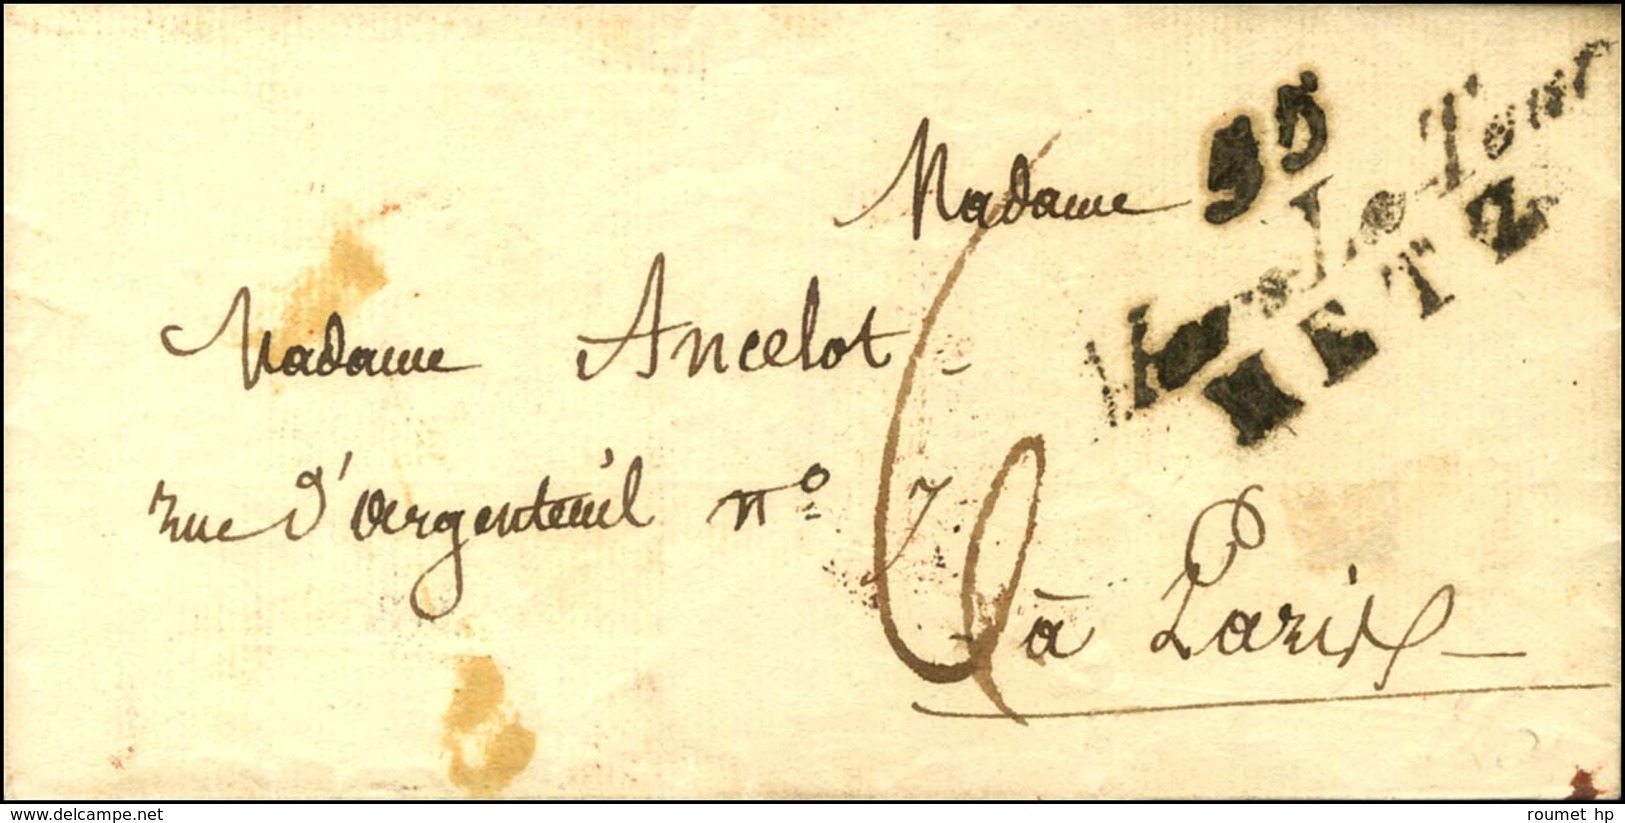 55
Mars La Tour
METZ
Madame
Madame Ancelot
rue d'argenteuil n° 7.
6
à Paris
www.delcampe.net
roumet hp